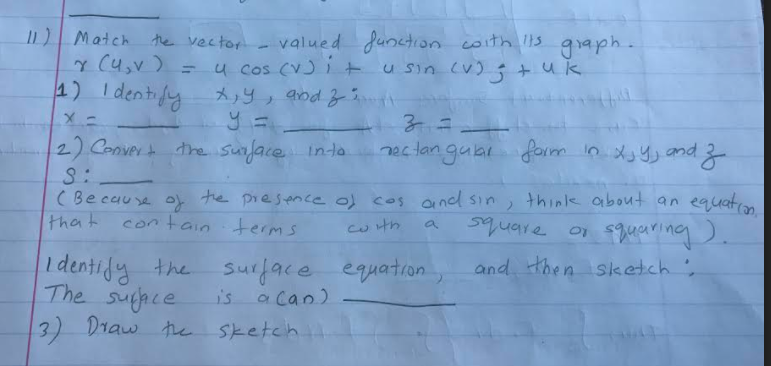 11) Match the vector - valued function with its graph.
r (u,v) = u cos (v) i + u sin (v) j + u k
1) Identify x, y, and z :
x = ____ y = ____ z = ____
2) Convert the surface into rectangular form in x, y, and z
S: ____
(Because of the presence of cos and sin, think about an equation
that contain terms with a square or squaring).
Identify the surface equation, and then sketch :
The surface is a(an) ____
3) Draw the sketch